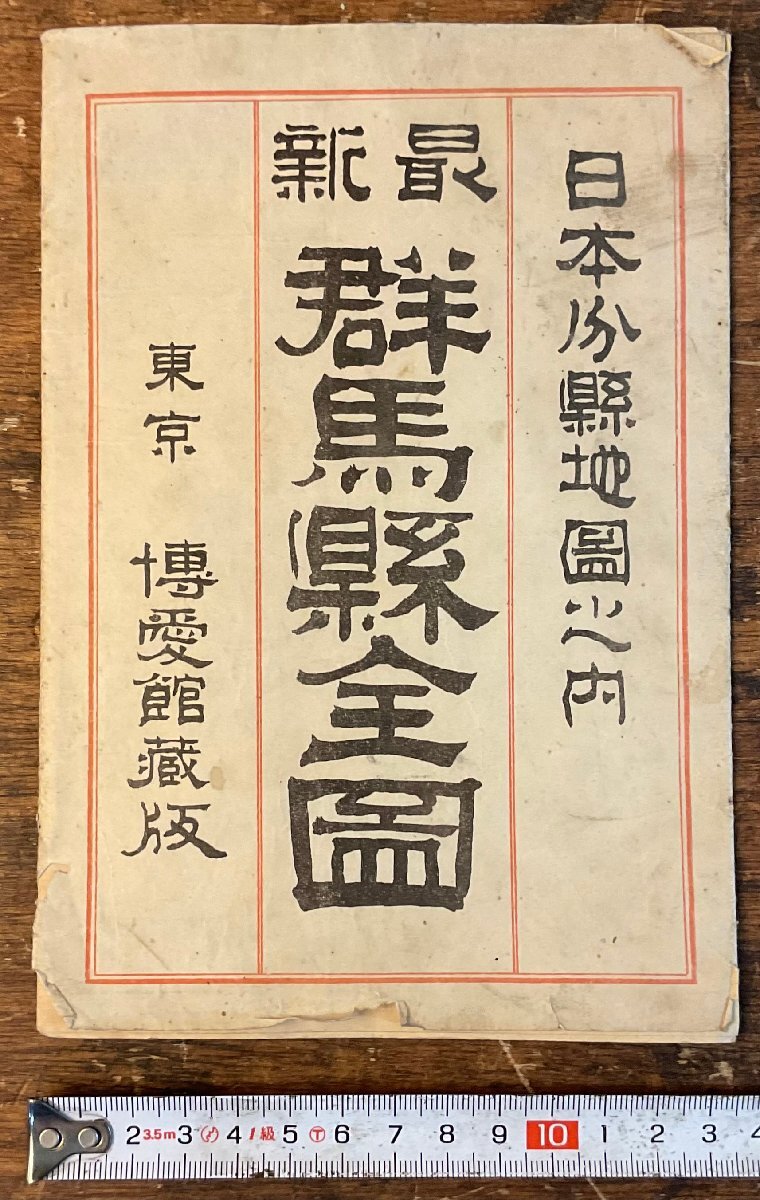 日本分縣地圖之内
最新
群馬縣全圖
東京 博愛館藏版
2 3.5m 3 4 1級 5 6 7 8 9 10 1 2 3 4